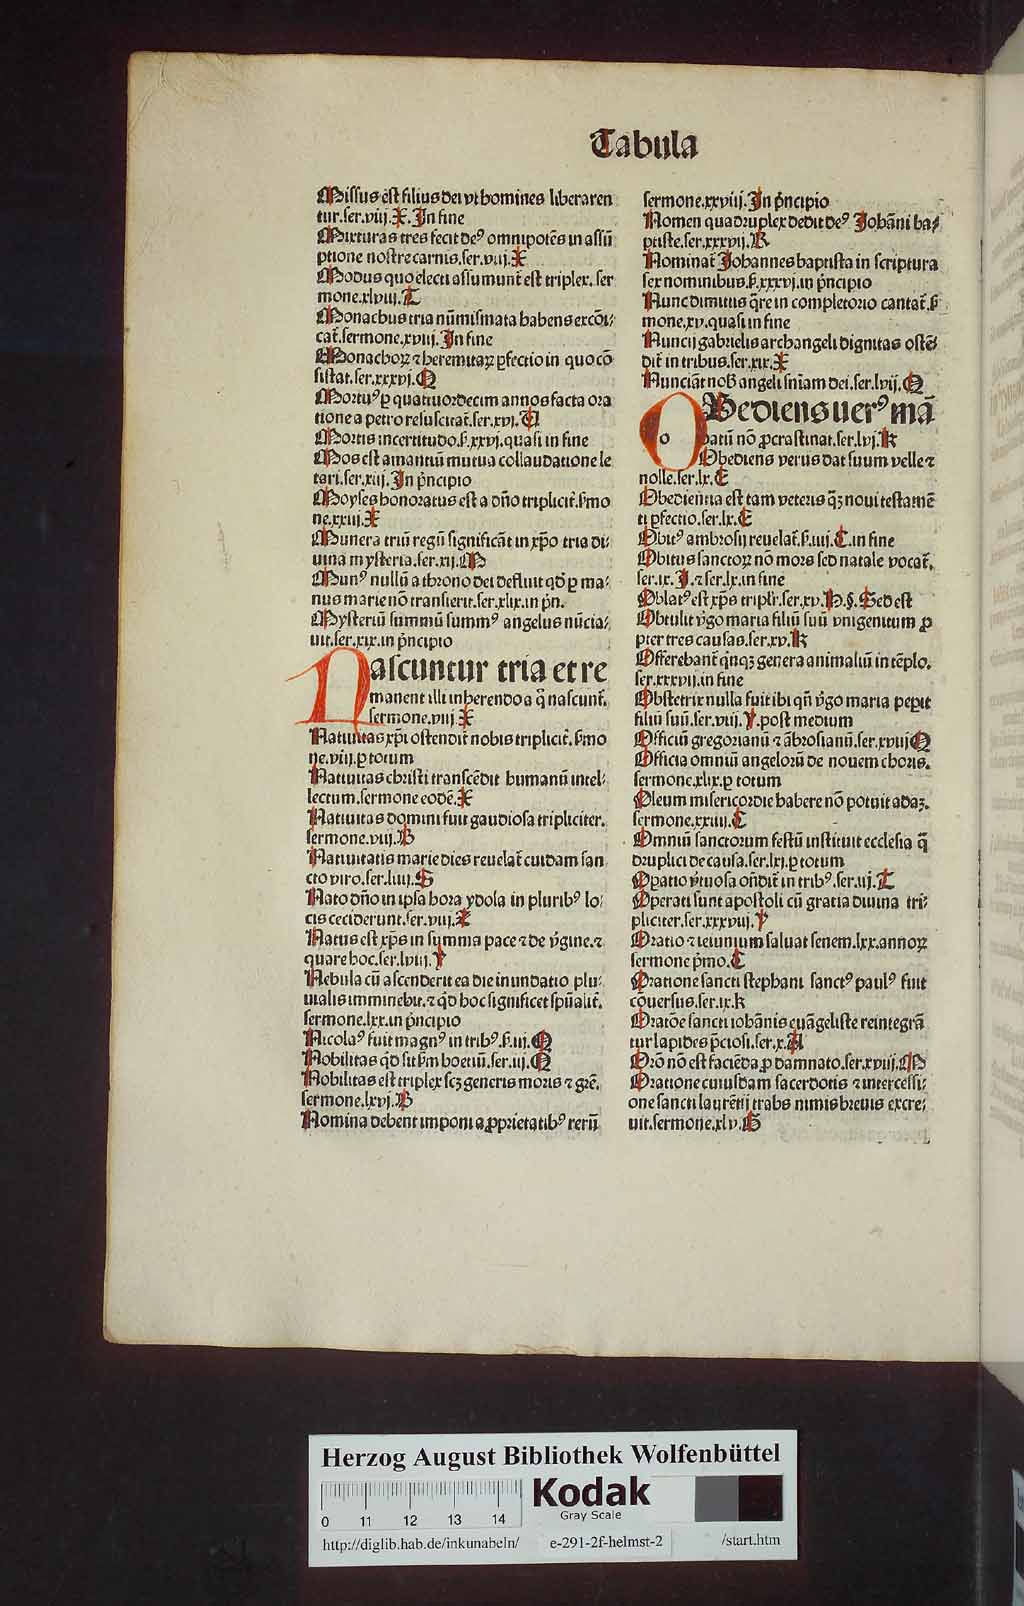 Tabula
Missus est filius dei vt homines liberaren
tur.ser.viij.X.In fine
Mixturas tres fecit deꝰ omnipotēs in assū
ptione nostre carnis.ser.viij.X
Modus quo electi assumunt̄ est triplex.ser
mone.xlviij.T
Monachus tria nūmismata habens excōi⸗
cat̄.sermone.xviij.In fine
Monachoꝝ ⁊ heremitaꝝ ꝑfectio in quo cō
sistat.ser.xxxvj.Q
Mortuꝰ ꝑ quattuordecim annos facta ora
tione a petro resuscitat̄.ser.xvj.
Mortis incertitudo.ẜ.xxvj.quasi in fine
Mos est amantiū mutua collaudatione le
tari.ser.xiij.In pͥncipio
Moyses honoratus est a dn̄o triplicit̄.ẜmo
ne.xxiij.X
Munera triū regū significāt in xp̄o tria di⸗
uina mysteria.ser.xij.M
Munꝰ nullū a throno dei defluit qd̄ ꝑ ma⸗
nus marie nō transierit.ser.xlix.in pͥn.
Mysteriū summū summꝰ angelus nūcia⸗
uit.ser.xix.in pͥncipio
Nascuntur tria et re
manent illi inherendo a qͦ nascunt̄.
sermone.viij.X
Natiuitas xp̄i ostendit nobis triplicit̄.ẜmo
ne.viij.ꝑ totum
Natiuitas christi transcēdit humanū intel⸗
lectum.sermone eodē.X
Natiuitas domini fuit gaudiosa tripliciter.
sermone.viij.B
Natiuitatis marie dies reuelat̄ cuidam san
cto viro.ser.liiij.S
Nato dn̄o in ipsa hora ydola in pluribꝰ lo⸗
cis ceciderunt.ser.viij.Z
Natus est xp̄s in summa pace ⁊ de vͥgine.⁊
quare hoc.ser.lviij.Y
Nebula cū ascenderit ea die inundatio plu⸗
uialis imminebit.⁊ qd̄ hoc significet spūalit̄.
sermone.lxx.in pͥncipio
Nicolaꝰ fuit magnꝰ in tribꝰ.ẜ.iij.Q
Nobilitas qd̄ sit ẜm boetiū.ser.iij.Q
Nobilitas est triplex scꝫ generis moris ⁊ grē.
sermone.lxvj.B
Nomina debent imponi a ꝓprietatibꝰ rerū
sermone.xxviij.In pͥncipio
Nomen quadruplex dedit deꝰ Johāni ba⸗
ptiste.ser.xxxvij.R
Nominat̄ Johannes baptista in scriptura
sex nominibus.ẜ.xxxvj.in pͥncipio
Nunc dimittis qͣre in completorio cantat̄.ẜ
mone.xv.quasi in fine
Nuncij gabrielis archangeli dignitas ostē⸗
dit̄ in tribus.ser.xix.X
Nunciāt nob̄ angeli sn̄iam dei.ser.lvij.Q
OBediens uerꝰ mā
o
datū nō ꝓcrastinat.ser.lvj.K
Obediens verus dat suum velle ⁊
nolle.ser.lx.E
Obedientia est tam veteris qͣꝫ noui testamē
ti ꝑfectio.ser.lx.E
Obitꝰ ambrosij reuelat̄.ẜ.iiij.C.in fine
Obitus sanctoꝝ nō mors sed natale vocat̄.
ser.ix.I.⁊ ser.lx.in fine
Oblatꝰ est xp̄s tripl̄r.ser.xv.H.§.Sed est
Obtulit vͥgo maria filiū suū vnigenitum ꝓ
pter tres causas.ser.xv.K
Offerebant̄ qͥnqꝫ genera animaliū in tēplo.
ser.xxxvij.in fine
Obstetrix nulla fuit ibi qn̄ vͥgo maria peperit
filiū suū.ser.viij.Y.post medium
Officiū gregorianū ⁊ ābrosianū.ser.xviij Q
Officia omniū angelorū de nouem choris.
sermone.xlix.ꝑ totum
Oleum misericordie habere nō potuit adaꝫ.
sermone.xxiiij.C
Omniū sanctorum festū instituit ecclesia qͣ
druplici de causa.ser.lxj.ꝑ totum
Opatio vͥtuosa on̄dit̄ in tribꝰ.ser.iij.T
Operati sunt apostoli cū gratia diuina tri⸗
pliciter.ser.xxxviij.Y
Oratio ⁊ ieiunium saluat senem.lxx.annoꝝ
sermone pͥmo.C
Oratione sancti stephani sanctꝰ paulꝰ fuit
cōuersus.ser.ix.k
Oratōe sancti iohānis euāgeliste reintegrā
tur lapides pͥciosi.ser.x.A
Orō nō est faciēda ꝓ damnato.ser.xviij.M
Oratione cuiusdam sacerdotis ⁊ intercessi⸗
one sancti laurētij trabs nimis breuis excre⸗
uit.sermone.xlv.G
Herzog August Bibliothek Wolfenbüttel
Kodak
Gray Scale
0 11 12 13 14
http://diglib.hab.de/inkunabeln/ e-291-2f-helmst-2 /start.htm